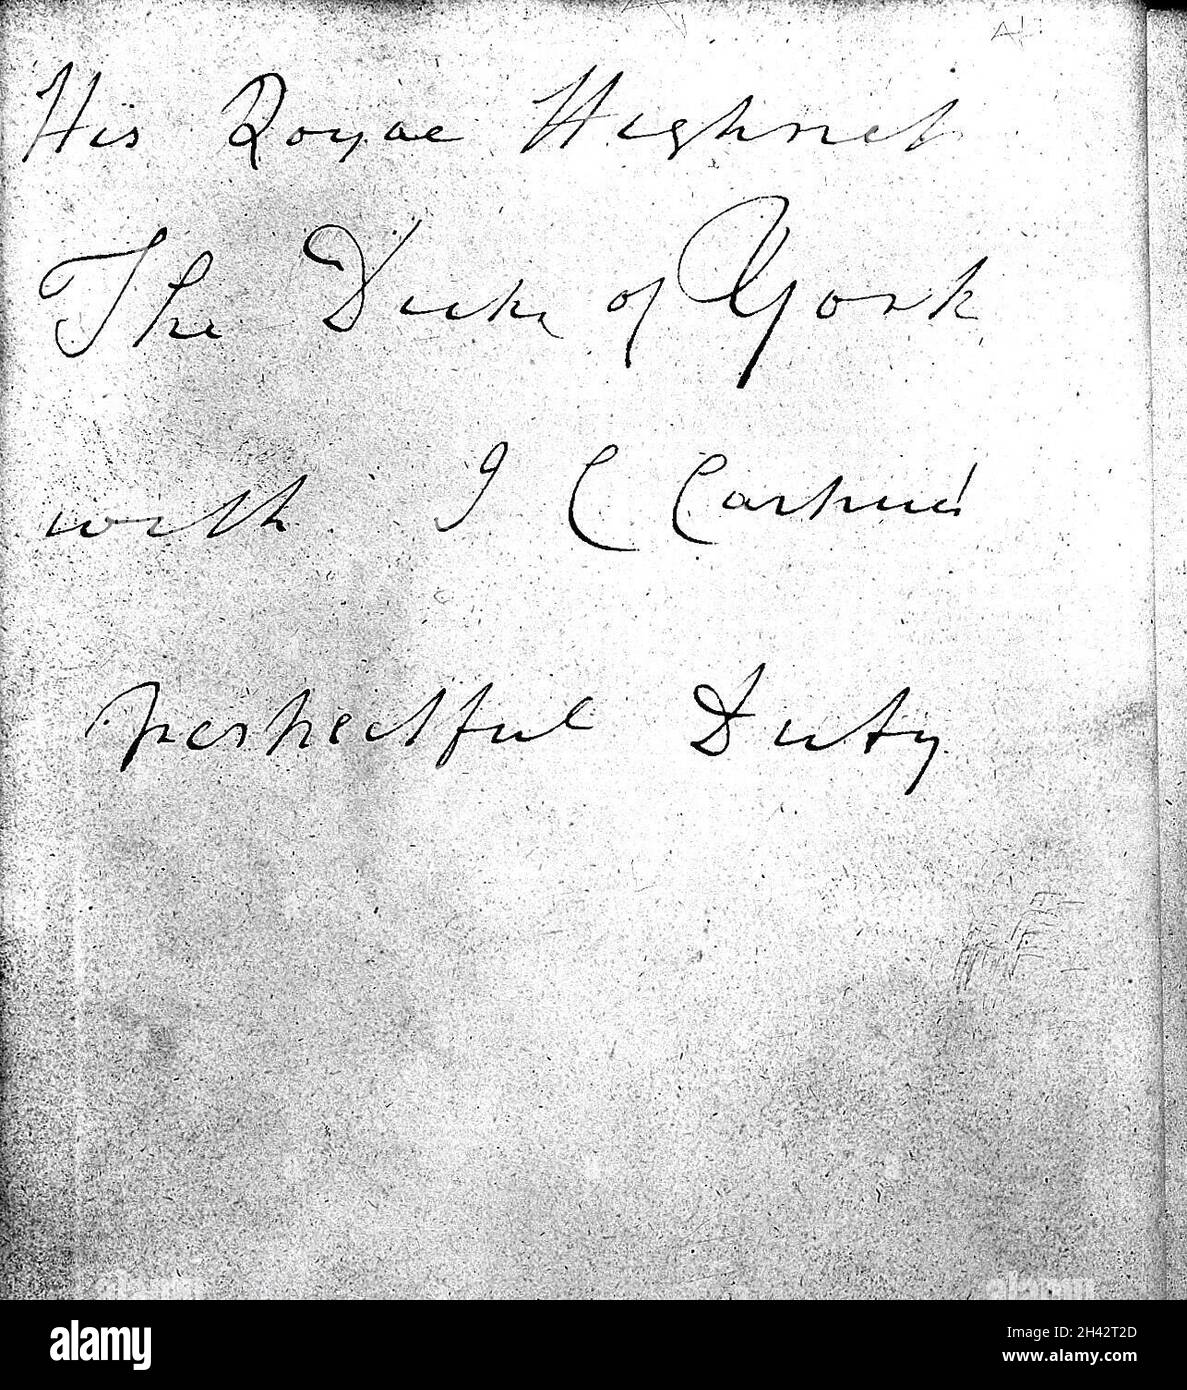 His Royal Highness
The Duke of York
with J C Carpue's
respectful Duty
alamy
alamy
alamy
Image ID: 2H42T2D
www.alamy.com